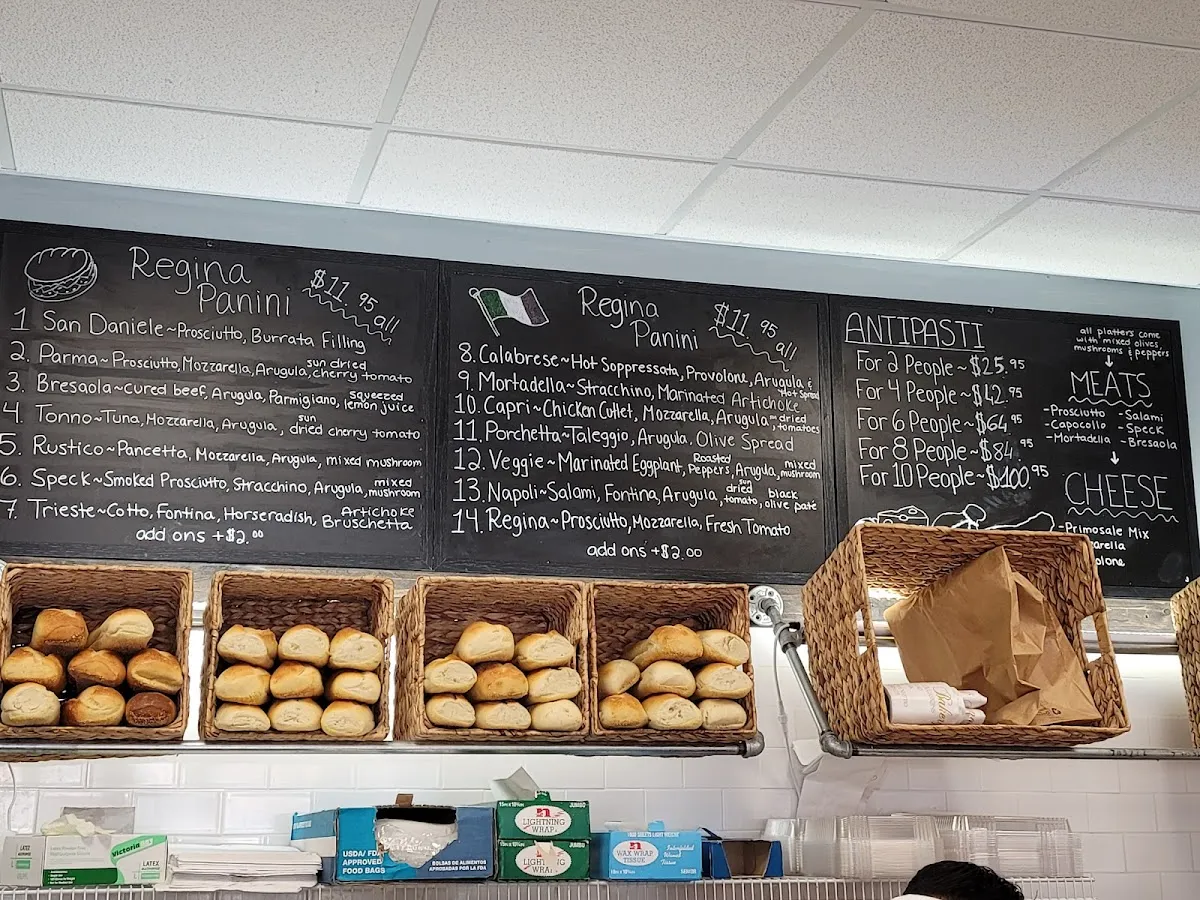 Regina
Panini
$11.95 all
1 San Daniele~Prosciutto, Burrata Filling
2. Parma~Prosciutto, Mozzarella, Arugula, sun dried cherry tomato
3. Bresaola~cured beef, Arugula, Parmigiano, squeezed lemon juice
4. Tonno~Tuna, Mozzarella, Arugula, sun dried cherry tomato
5. Rustico~Pancetta, Mozzarella, Arugula, mixed mushroom
6. Speck~Smoked Prosciutto, Stracchino, Arugula, mixed mushroom
7. Trieste~Cotto, Fontina, Horseradish, Artichoke Bruschetta
add ons +$2.00
Regina
Panini
$11.95 all
8. Calabrese~Hot Soppressata, Provolone, Arugula, & Hot Spread
9. Mortadella~Stracchino, Marinated Artichoke
10. Capri~Chicken Cutlet, Mozzarella, Arugula, dried tomatoes
11. Porchetta~Taleggio, Arugula, Olive Spread
12. Veggie~Marinated Eggplant, Roasted Peppers, Arugula, mixed mushroom
13. Napoli~Salami, Fontina, Arugula, sun dried tomato, black olive paté
14. Regina~Prosciutto, Mozzarella, Fresh Tomato
add ons +$2.00
ANTIPASTI
For 2 People~$25.95
For 4 People~$42.95
For 6 People~$64.95
For 8 People~$84.95
For 10 People~$100.95
all platters come
with mixed olives,
mushrooms & peppers
MEATS
-Prosciutto -Salami
-Capocollo -Speck
-Mortadella -Bresaola
CHEESE
-Primosale Mix
arella
olone
LATEX
Victoria
LATEX
USDA/FDA
APPROVED
FOOD BAGS
BOLSAS DE ALIMENTOS
APROBADA POR LA FDA
JUMBO
LIGHTNING
WRAP
JUMBO
WAX WRAP
TISSUE
Interfolded
Waxed
Tissue